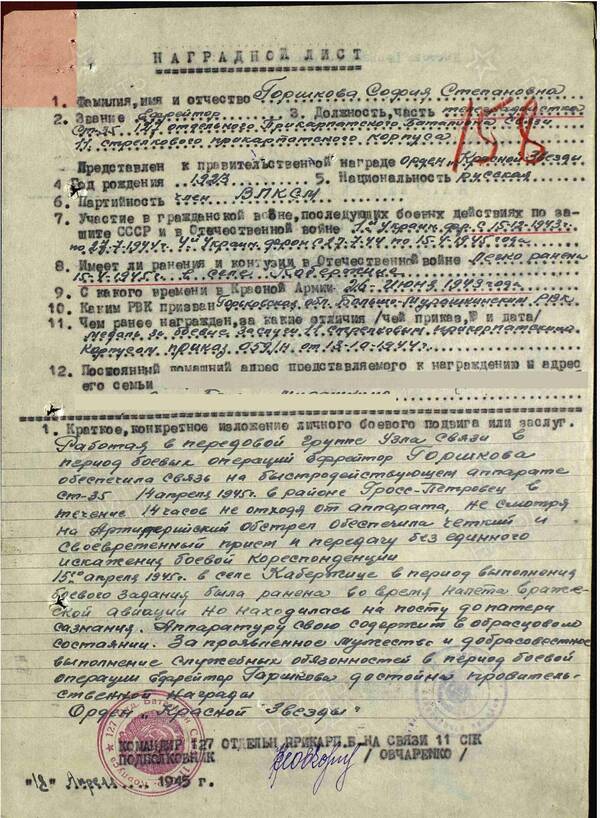 НАГРАДНОЙ ЛИСТ
1. Фамилия, имя и отчество Горшкова София Степановна
2. Звание Ефрейтор 3. Должность, часть телеграфистка
Ст-35 127 отдельного Прикарпатского Батальона Связи
11 стрелкового прикарпатского корпуса
158
Представлен к правительственной награде Орден "Красной Звезды
4 Год рождения 1923 5. Национальность русская
6. Партийность член ВЛКСМ
7. Участие в гражданской войне, последующих боевых действиях по за-
щите СССР и в Отечественной войне 1й Украин. фр. с 15.12.1943г.
по 27.7.1944г. 4й Украин. фронт с 27.7.44 по 15.4.1945 года
8. Имеет ли ранения и контузии в Отечественной войне Легко ранена
15.4.1945г. в селе
9. С какого времени в Красной Армии Июня 1943 года
10. Каким РВК призван Горьковская обл. Больше-Мурашкинским РВК
11. Чем ранее награжден, за какие отличия /чей приказ, № и дата/
Медаль за Боевые Заслуги 11 Стрелковым прикарпатским
Корпусом приказ 059/Н от 13.10.1944г.
12. Постоянный домашний адрес представляемого к награждению и адрес
его семьи
1. Краткое, конкретное изложение личного боевого подвига или заслуг.
Работая в передовой группе Узла связи в
период боевых операций ефрейтор Горшкова
обеспечила связь на быстродействующем аппарате
Ст-35 14 апреля 1945г. в районе Гросс-Петровец в
течение 14 часов не отходя от аппарата, не смотря
на Артилерийский Обстрел обеспечила четкий и
своевретенный прием и передачу без единного
искажения боевой кореспонденции
15го апреля 1945г. в селе Кабержице в период выполнения
боевого задания была ранена во время налета враже-
ской авиации но находилась на посту до патери
сазнания. Аппаратуру свою содержит в образцовом
состоянии. За проявленное мужество и добрасовестное
выполнение служебных обязонностей в период боевой
операции ефрейтор Горшкова достойна провитель-
ственной Награды
Орден "Красной Звезды"
КОМАНДИР 127 ОТДЕЛЬН ПРИКАРП.Б-НА СВЯЗИ 11 СПК
ПОДПОЛКОВНИК / ОВЧАРЕНКО /
"18" Апреля 1945 г.